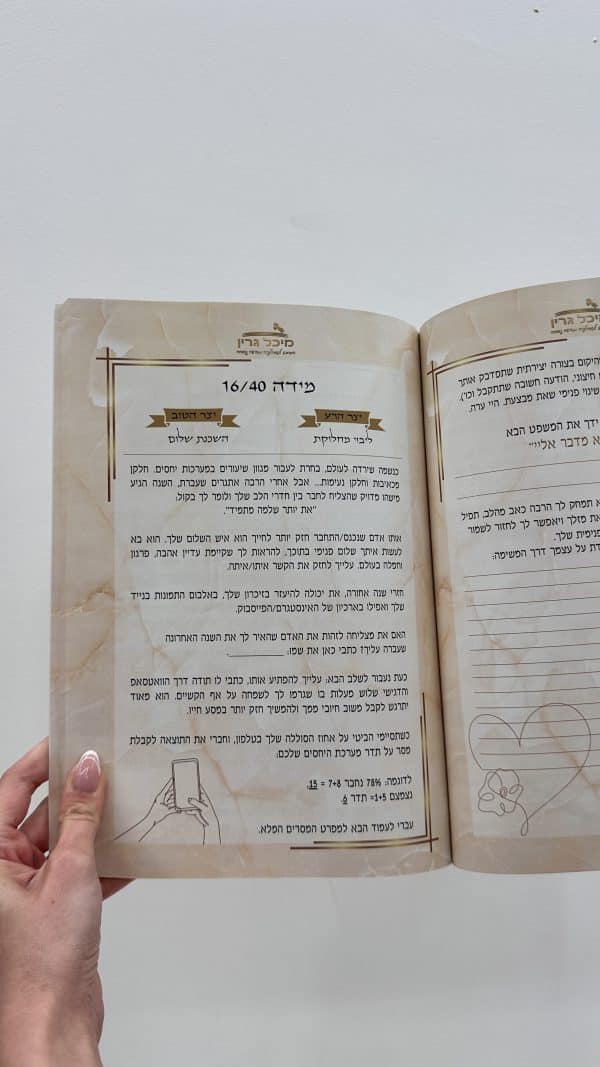 מיכל גרין
מידה 16/40
יצר הרע
יצר הטוב
ליבוי מחלוקת
השכנת שלום
כנשמה שירדה לעולם, בחרת לעבור מגוון שיעורים במערכות יחסים. חלקן
מכאיבות וחלקן נעימות... אבל אחרי הרבה אתגרים שעברת, השנה הגיע
מישהו מדויק שהצליח לחבר בין חדרי הלב שלך ולומר לך בקול:
"את יותר שלמה מתמיד".
אותו אדם שנכנס/התחבר חזק יותר לחייך הוא איש השלום שלך. הוא בא
לעשות איתך שלום פנימי בתוכך, להראות לך שקיימת עדיין אהבה, פרגון
וחמלה בעולם. עלייך לחזק את הקשר איתו/איתה.
חזרי שנה אחורה, את יכולה להיעזר בזיכרון שלך, באלבום התמונות בנייד
שלך ואפילו בארכיון של האינסטגרם/הפייסבוק.
האם את מצליחה לזהות את האדם שהאיר לך את השנה האחרונה
שעברה עליך? כתבי כאן את שמו: ____________.
כעת נעבור לשלב הבא: עלייך להפתיע אותו, כתבי לו תודה דרך הוואטסאפ
והדגישי שלוש פעולות בו שגרמו לך לשמחה על אף הקשיים. הוא מאוד
יתרגש לקבל משוב חיובי ממך ולהמשיך חזק יותר במסע חייו.
כשתסיימי הביטי על אחוז הסוללה שלך בטלפון, וחברי את התוצאה לקבלת
מסר על תדר מערכת היחסים שלכם:
לדוגמה: 78% נחבר 7+8 = 15.
נצמצם 1+5= תדר 6.
עברי לעמוד הבא למפרט המסרים המלא.
מיכל גרין
היקום בצורה יצירתית שתסדבק אותך
חיצוני, הודעה חשובה שתתקבל וכו').
שינוי פנימי שאת מבצעת. היי ערה.
ידך את המשפט הבא
א מדבר אליי"
א תמחק לך הרבה כאב מהלב, תפיל
את מזלך ויאפשר לך לחזור לשמור
פנימית שלך.
דת על עצמך דרך המשימה: